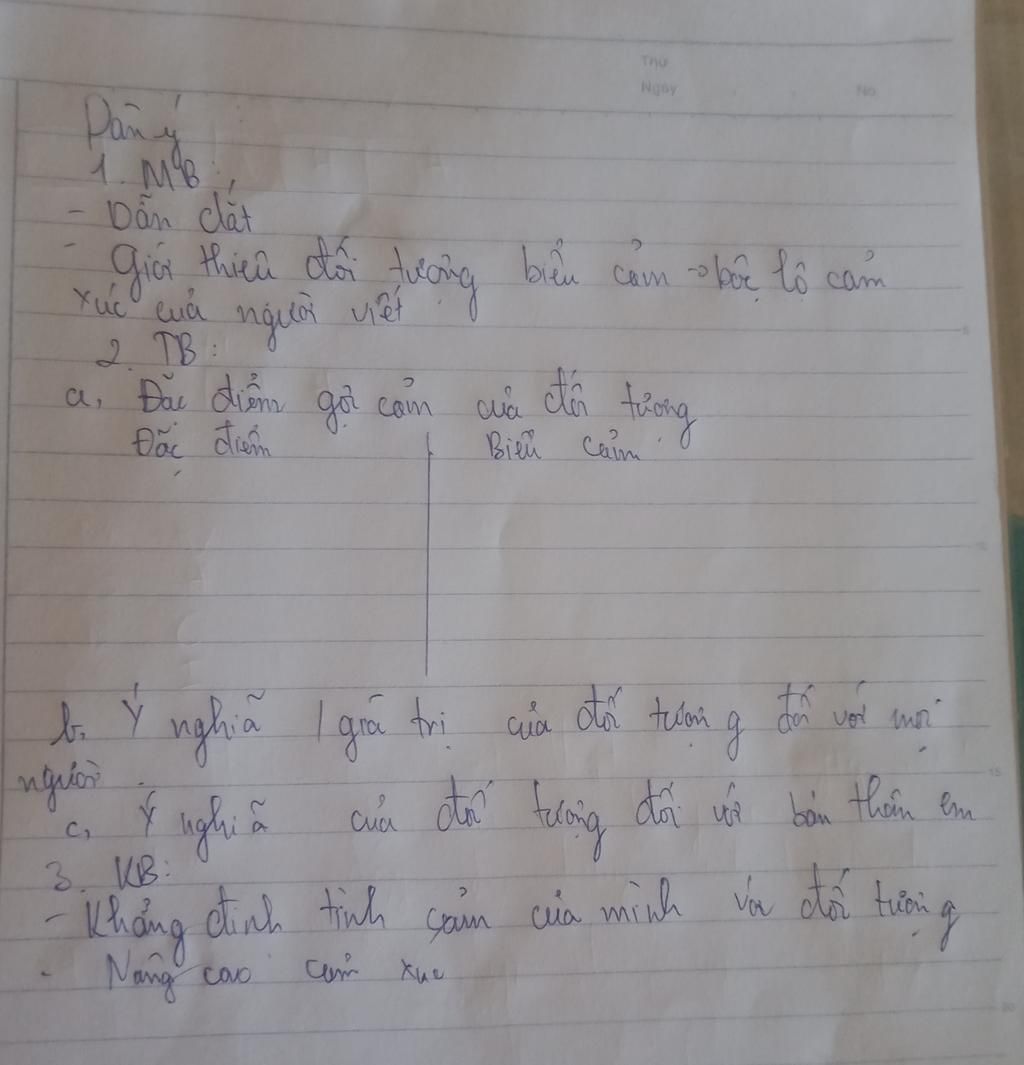 Thứ
Ngày No
Dàn ý
1. MB:
- Dẫn dắt
- Giới thiệu đối tượng biểu cảm → bộc lộ cảm
xúc của người viết
2. TB:
a, Đặc điểm gợi cảm của đối tượng
Đặc điểm Biểu cảm
b, Ý nghĩa / giá trị của đối tượng đối với mọi
người
c, Ý nghĩa của đối tượng đối với bản thân em
3. KB:
- Khẳng định tình cảm của mình với đối tượng
- Nâng cao cảm xúc